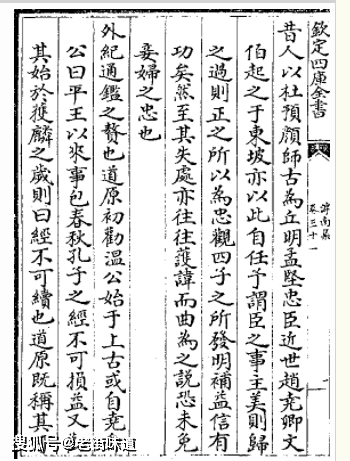 欽定四庫全書
滹南集
卷三十一
昔人以杜預顔師古為丘明孟堅忠臣近世趙堯卿文
伯起之于東坡亦以此自任予謂臣之事主美則歸
之過則正之所以為忠觀四子之所發明補益信有
功矣然至其失處亦往往護諱而曲為之説恐未免
妾婦之忠也
外紀通鑑之贅也道原初勸溫公始于上古或自堯
公曰平王以來事包春秋孔子之經不可損益又
其始於獲麟之歲則曰經不可續也道原既稱其
搜狐号@老街味道